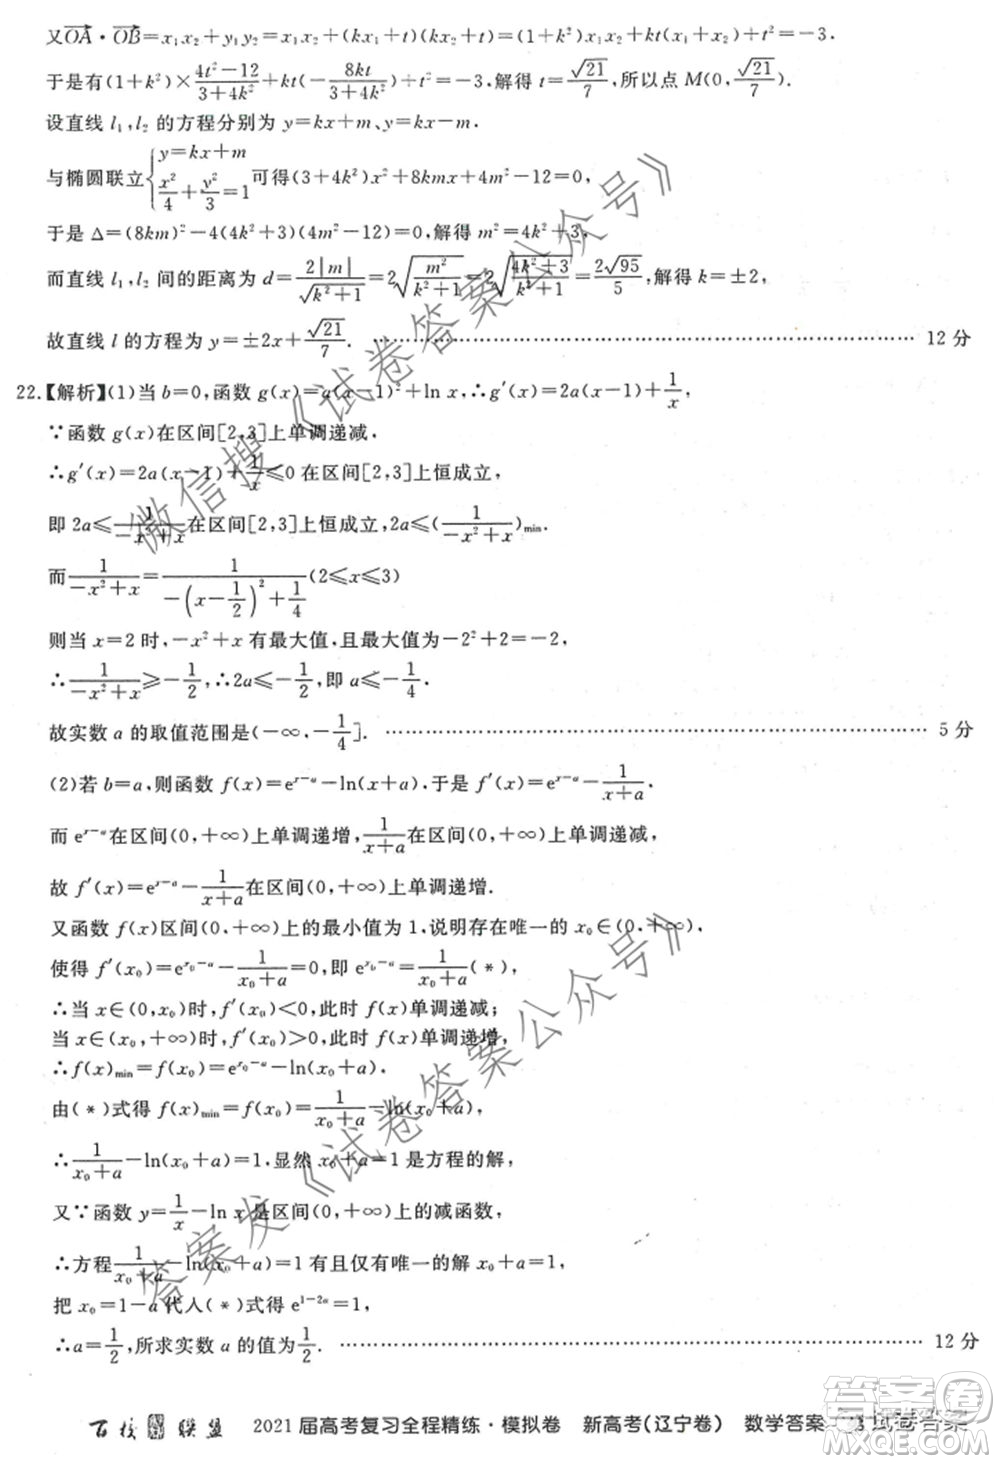 又OA·OB=x₁x₂+y₁y₂=x₁x₂+(kx₁+t)(kx₂+t)=(1+k²)x₁x₂+kt(x₁+x₂)+t²=-3.
于是有(1+k²)×(4t²-12)/(3+4k²)+kt(-8kt/(3+4k²))+t²=-3,解得t=√21/7,所以点M(0,√21/7).
设直线l₁,l₂的方程分别为y=kx+m、y=kx-m.
与椭圆联立{y=kx+m x²/4+y²/3=1可得(3+4k²)x²+8kmx+4m²-12=0,
于是Δ=(8km)²-4(4k²+3)(4m²-12)=0,解得m²=4k²+3,
而直线l₁,l₂间的距离为d=2|m|/√(k²+1)=2√(m²/(k²+1))=2√((4k²+3)/(k²+1))=2√95/5,解得k=±2,
故直线l的方程为y=±2x+√21/7. …… 12分
22.【解析】(1)当b=0,函数g(x)=a(x-1)²+ln x,∴g′(x)=2a(x-1)+1/x,
∵函数g(x)在区间[2,3]上单调递减,
∴g′(x)=2a(x-1)+1/x≤0在区间[2,3]上恒成立,
即2a≤1/(-x²+x)在区间[2,3]上恒成立,2a≤(1/(-x²+x))min.
而1/(-x²+x)=1/(-(x-1/2)²+1/4)(2≤x≤3)
则当x=2时,-x²+x有最大值,且最大值为-2²+2=-2,
∴1/(-x²+x)≥-1/2,∴2a≤-1/2,即a≤-1/4.
故实数a的取值范围是(-∞,-1/4]. …… 5分
(2)若b=a,则函数f(x)=eˣ⁻ᵃ-ln(x+a),于是f′(x)=eˣ⁻ᵃ-1/(x+a).
而eˣ⁻ᵃ在区间(0,+∞)上单调递增,1/(x+a)在区间(0,+∞)上单调递减,
故f′(x)=eˣ⁻ᵃ-1/(x+a)在区间(0,+∞)上单调递增.
又函数f(x)区间(0,+∞)上的最小值为1,说明存在唯一的x₀∈(0,+∞),
使得f′(x₀)=e^(x₀-a)-1/(x₀+a)=0,即e^(x₀-a)=1/(x₀+a)(*),
∴当x∈(0,x₀)时,f′(x)<0,此时f(x)单调递减;
当x∈(x₀,+∞)时,f′(x)>0,此时f(x)单调递增,
∴f(x)min=f(x₀)=e^(x₀-a)-ln(x₀+a).
由(*)式得f(x)min=f(x₀)=1/(x₀+a)-ln(x₀+a),
∴1/(x₀+a)-ln(x₀+a)=1,显然x₀+a=1是方程的解,
又∵函数y=1/x-ln x是区间(0,+∞)上的减函数,
∴方程1/(x₀+a)-ln(x₀+a)=1有且仅有唯一的解x₀+a=1,
把x₀=1-a代人(*)式得e^(1-2a)=1,
∴a=1/2,所求实数a的值为1/2. …… 12分
百校联盟 2021届高考复习全程精练·模拟卷 新高考(辽宁卷) 数学答案
微信搜《试卷答案公众号》
答案发《试卷答案公众号》
试卷答案
MXQE.COM